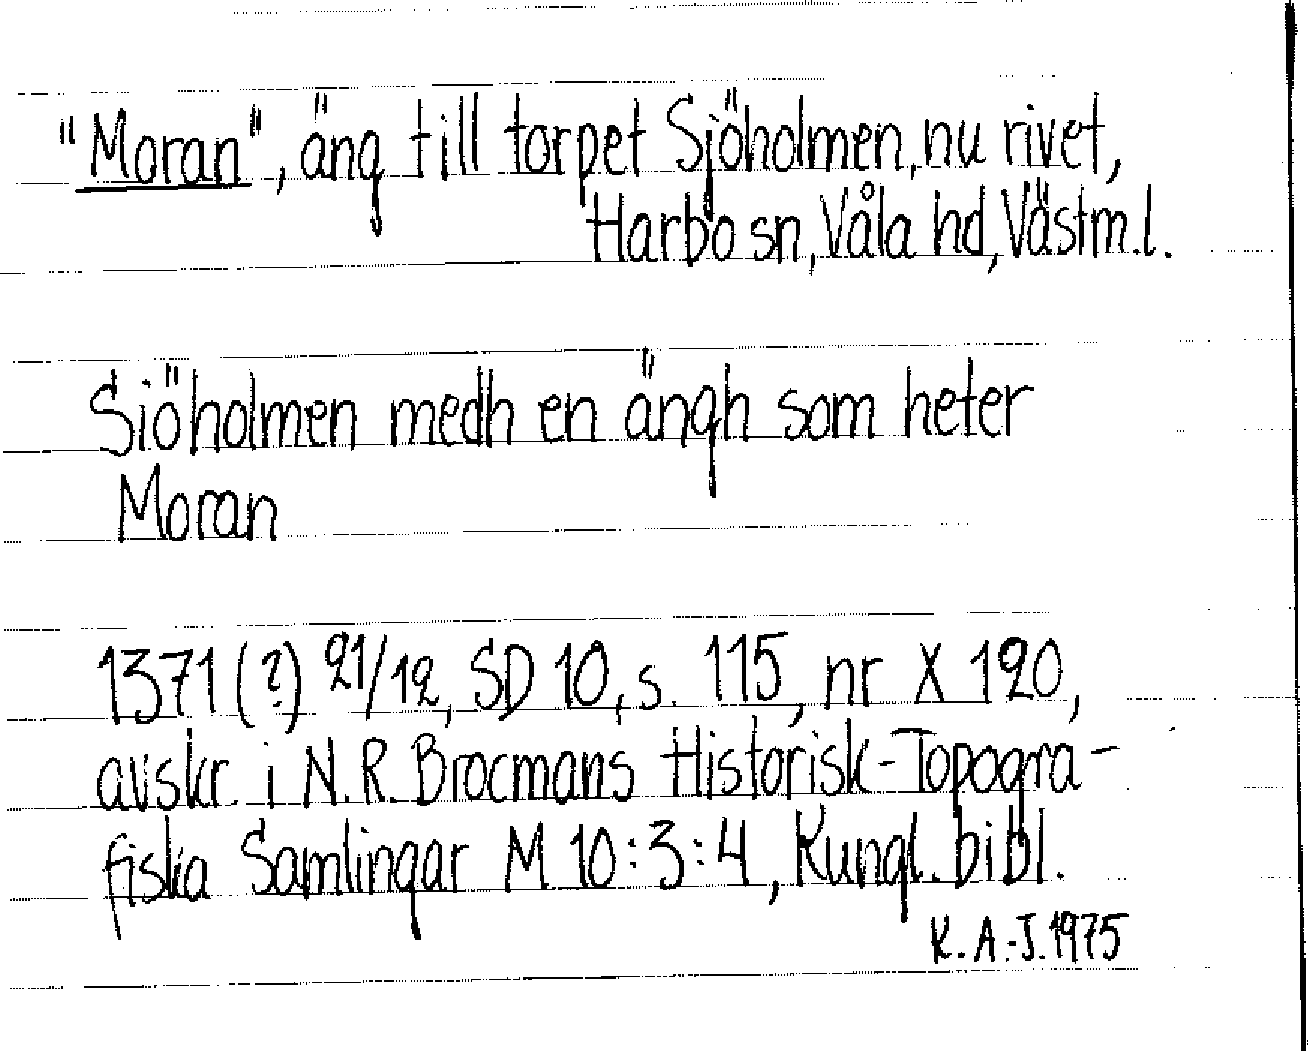 "Moran", äng till torpet Sjöholmen, nu rivet,
Harbo sn, Våla hd, Västm.l.
Siöholmen medh en ängh som heter
Moran
1371(?) 21/12, SD 10, s. 115, nr X 120,
avskr. i N.R. Brocmans Historisk-Topogra-
fiska Samlingar M 10:3:4, Kungl. bibl.
K.A.-J. 1975